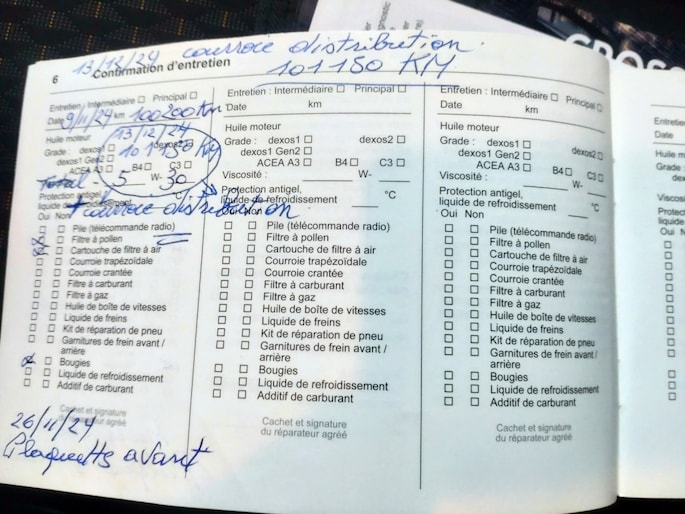 13/12/24 courroie distribution.
101150 KM
6 Confirmation d'entretien
CROSS
Entretien : Intermédiaire ☐ Principal ☐
Date 9/11/24 km 100200 Km
Huile moteur 13/12/24
Grade : dexos1 ☐ dexos2 ☐
dexos1 Gen2 ☐ 101150 KM
ACEA A3 ☐ B4 ☐ C3 ☐
Total 5 W- 30
Protection antigel,
liquide de refroidissement
+ courroie distribution.
Oui Non
☐ Pile (télécommande radio)
Filtre à pollen
Cartouche de filtre à air
Courroie trapézoïdale
Courroie crantée
Filtre à carburant
Filtre à gaz
Huile de boîte de vitesses
Liquide de freins
Kit de réparation de pneu
Garnitures de frein avant /
arrière
Bougies
Liquide de refroidissement
Additif de carburant
Cachet et signature
du réparateur agréé
26/11/24
Plaquetts avant
Entretien : Intermédiaire ☐ Principal ☐
Date km
Huile moteur
Grade : dexos1 ☐ dexos2 ☐
dexos1 Gen2 ☐
ACEA A3 ☐ B4 ☐ C3 ☐
Viscosité : W-
Protection antigel,
liquide de refroidissement °C
Oui Non
☐ ☐ Pile (télécommande radio)
☐ ☐ Filtre à pollen
☐ ☐ Cartouche de filtre à air
☐ ☐ Courroie trapézoïdale
☐ ☐ Courroie crantée
☐ ☐ Filtre à carburant
☐ ☐ Filtre à gaz
☐ ☐ Huile de boîte de vitesses
☐ ☐ Liquide de freins
☐ ☐ Kit de réparation de pneu
☐ ☐ Garnitures de frein avant /
arrière
☐ ☐ Bougies
☐ ☐ Liquide de refroidissement
☐ ☐ Additif de carburant
Cachet et signature
du réparateur agréé
Entretien : Intermédiaire ☐ Principal ☐
Date km
Huile moteur
Grade : dexos1 ☐ dexos2 ☐
dexos1 Gen2 ☐
ACEA A3 ☐ B4 ☐ C3 ☐
Viscosité : W-
Protection antigel,
liquide de refroidissement °C
Oui Non
☐ ☐ Pile (télécommande radio)
☐ ☐ Filtre à pollen
☐ ☐ Cartouche de filtre à air
☐ ☐ Courroie trapézoïdale
☐ ☐ Courroie crantée
☐ ☐ Filtre à carburant
☐ ☐ Filtre à gaz
☐ ☐ Huile de boîte de vitesses
☐ ☐ Liquide de freins
☐ ☐ Kit de réparation de pneu
☐ ☐ Garnitures de frein avant /
arrière
☐ ☐ Bougies
☐ ☐ Liquide de refroidissement
☐ ☐ Additif de carburant
Cachet et signature
du réparateur agréé
Entretien
Date
Huile mo
Grade :
Viscosit
Protect
liquide
Oui